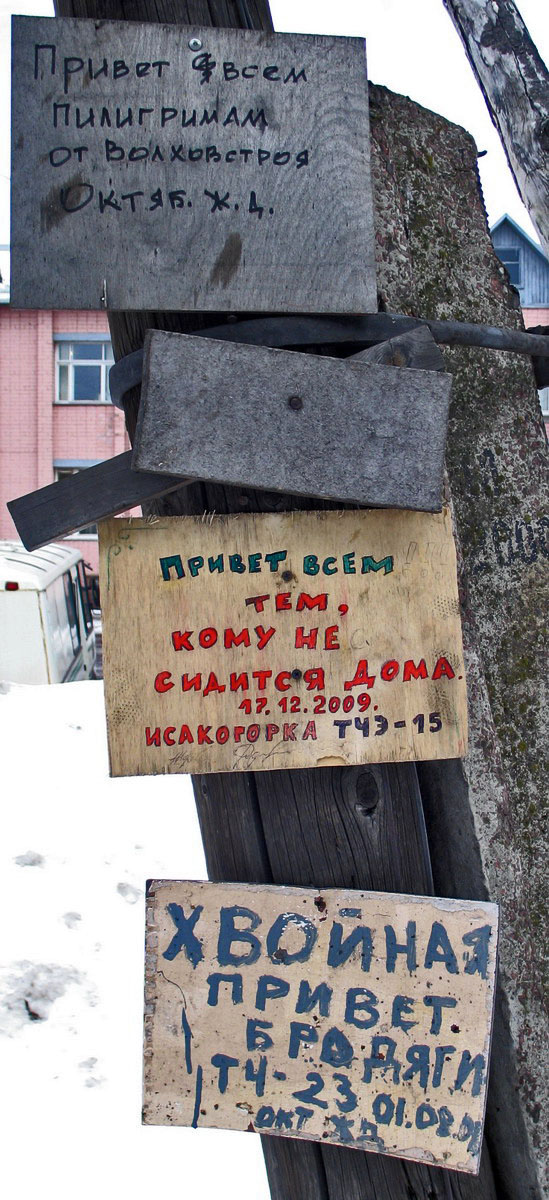 Привет всем
пилигримам
от Волховстроя
Октяб. ж.д.
ПРИВЕТ ВСЕМ
ТЕМ,
КОМУ НЕ
СИДИТСЯ ДОМА.
17.12.2009.
ИСАКОГОРКА ТЧЭ-15
ХВОЙНАЯ
ПРИВЕТ
БРОДЯГИ
ТЧ-23 01.08.09
ОКТ ЖД